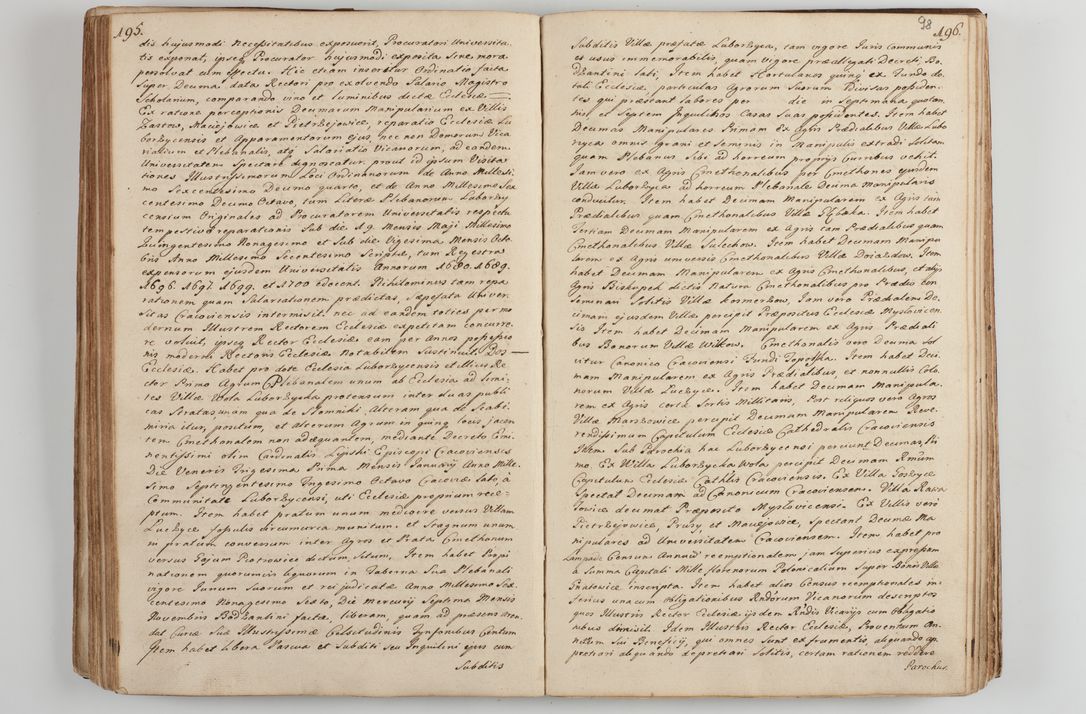 195.
dis hujusmodi Necessitatibus exposuerit, Procuratori Universita
tis exponat, ipseq Procurator hujusmodi exposita sine mora
persolvat cum effectu. Hic etiam inseritur Ordinatio facta
super Decima data Rectori pro exolvendo Salario Magistro
Scholarum, comparando vino et luminibus dictæ Ecclesiæ.
Ex ratione perceptionis Decimarum Manipularium ex Villis
Zastow, Maciejowice et Pietrzejowice, reparatio Ecclesiæ Lu
borzycensis et Apparamentorum ejus, nec non Domorum Vica
rialium et Plebanalis, atq Salariatio Vicariorum, ad eandem
Universitatem Spectare dignoscatur. prout id ipsum Visita
tiones Illustrissimorum Loci Ordinariorum de Anno Millesi
mo Sexcentesimo Decimo quarto, et de Anno Millesimo Sex
centesimo Decimo Octavo, tum Literæ Plebanorum Luborzy
censium Originales ad Procuratorem Universitatis respectu
tempestivæ reparationis Sub die 19. Mensis Maji Millesimo
Quingentesimo Nonagesimo et Sub die Vigesima Mensis Octo
bris Anno Millesimo Sexcentesimo Scriptæ, tum Regestra
expensorum ejusdem Universitatis Annorum 1680. 1689.
1696. 1697. 1699. et 1700 edocent. Nihilominus tam repa
rationem quam Salariationem prædictas, sæpefata Univer
sitas Cracoviensis intermisit. nec ad eandem toties per mo
dernum Illustrem Rectorem Ecclesiæ expetitam concurre
re voluit, ipseq Rector Ecclesiæ eam per Annos possessio
nis moderni Rectoris Ecclesiæ notabilem Sustinuit. Dos
Ecclesiæ. Habet pro dote Ecclesia Luborzycensis et illius Re
ctor Primo Agrum Plebanalem unum ab Ecclesia ad limi
tes Villæ Wola Luborzycka protensum inter duas publi
cas Stratas unam qua de Słomniki, Alteram qua de Skalbi
miria itur, positum, et alterum Agrum in quinq locis jacen
tem Cmethonalem non adæquantem, mediante Decreto Emi
nentissimi olim Cardinalis Lipski Episcopi Cracoviensis
Die Veneris Trigesima Prima Mensis Januarij Anno Mille
simo Septingentesimo Trigesimo Octavo Cracoviæ lato, a
Communitate Luborzycensi, uti Ecclesiæ proprium rece-
ptum. Item habet pratum unum mediocre versus Villam
Luczyce Sopulis circumcirca munitum. et Stagnum unum
in pratum conversum inter Agros et Prata Cmethonum
versus Gajum Piotrowice dictum Situm, Item habet Propi
nationem quorumvis liquorum in Taberna Sua Plebanali
vigore Jurium Suorum et rei judicatæ Anno Millesimo Sex
centesimo Nonagesimo Sexto, Die Mercurij Septima Mensis
Novembris Bodzantini factæ, liberam, quam ad præsens aren
dat Curiæ Suæ Illustrissimæ Celsitudinis Tynfonibus Centum
Item habet libera Pascua et Subditi seu Inquilini ejus cum
Subditis
98
196.
Subditis Villæ præfatæ Luborzyca, tam vigore Juris communis
et usus immemorabilis, quam vigore præallegati decreti Bo
dzantini lati; Item habet Hortulanos quinq ex Fundo do
tali Ecclesiæ, particulas Agrorum Suorum Divisas possiden
tes qui præstant labores per die in Septimana quotan
nis, et Septem Inquilinos Casas Suas possidentes. Item habet
Decimas Manipulares. Primam ex Agris Prædialibus Villæ Lubo
rzyca omnis grani et Seminis in Manipulis extradi Solitam
quam Plebanus Sibi ad horreum proprijs Curribus vehit.
Jam vero ex Agris Cmethonalibus per Cmethones ejusdem
Villæ Luborzyca ad horreum Plebanale Decima Manipularis
conducitur. Item habet Decimam Manipularem ex Agris tam
Prædialibus quam Cmethonalibus Villæ Item habet
Tertiam Decimam Manipularem ex Agris tam Prædialibus quam
Cmethonalibus Villæ Sulechow. Item habet Decimam Manipu
larem ex Agris universis Cmethonalibus Villæ Dojazdow. Item
habet Decimam Manipularem ex Agris Cmethonalibus, et alijs
Agris Biskupek dictis Natura Cmethonalibus pro Prædio con
seminari Solitis Villæ Kosmerkow, Jam vero Prædialem De
cimam ejusdem Villæ percipit Præpositus Ecclesiæ Myslovicen
sis Item habet Decimam Manipularem ex Agris Prædiali
bus Bonorum Villæ Witkow. Cmethonalis vero Decima Sol
vitur Canonico Cracoviensi Fundi Topolska. Item habet Deci
mam Manipularem ex Agris Prædialibus, et nonnullis Colo
norum Villæ Luczyce. Item habet Decimam Manipula
rem ex Agris certæ Sortis Millitaris, Post reliquos vero Agros
Villæ Marszowice percipit Decimam Manipularem Reve
rendissimum Capitulum Ecclesiæ Cathedralis Cracoviensis
Item Sub Parochia hac Luborzycensi percipiunt Decimas, Pri
mo Ex Villa Luborzycka Wola percipit Decimam Rmum
Capitulum Ecclesiæ Cathlis Cracoviensis. Ex Villa
Spectat Decimam ad Canonicum Cracoviensem. Villa Rawa
łowice decimat Præposito Myslovicensi. Ex Villis vero
Pietrzejowice, Prusy et Maciejowice, Spectant Decimæ Ma
nipulares ad Universitatem Cracoviensem. Item habet pro
Lampade Censum Annuũ reemptionalem jam Superius expressum
a Summa Capitali Mille florenorum Polonicalium Super Bonis Villæ
Pratowice inscripta. Item habet alios Census reemptionales in-
ferius una cum obligationibus Rndorum Vicariorum descriptos
quos Illustris Rector Ecclesiæ ijsdem Rndis Vicarijs cum Obligatio
nibus dimisit. Idem Illustris Rector Ecclesiæ, Proventum An-
nuum Sui Beneficij, qui omnes Sunt ex frumentis, aliquando ap
pretiari aliquando depretiari Solitis, certam rationem reddere
Parochus